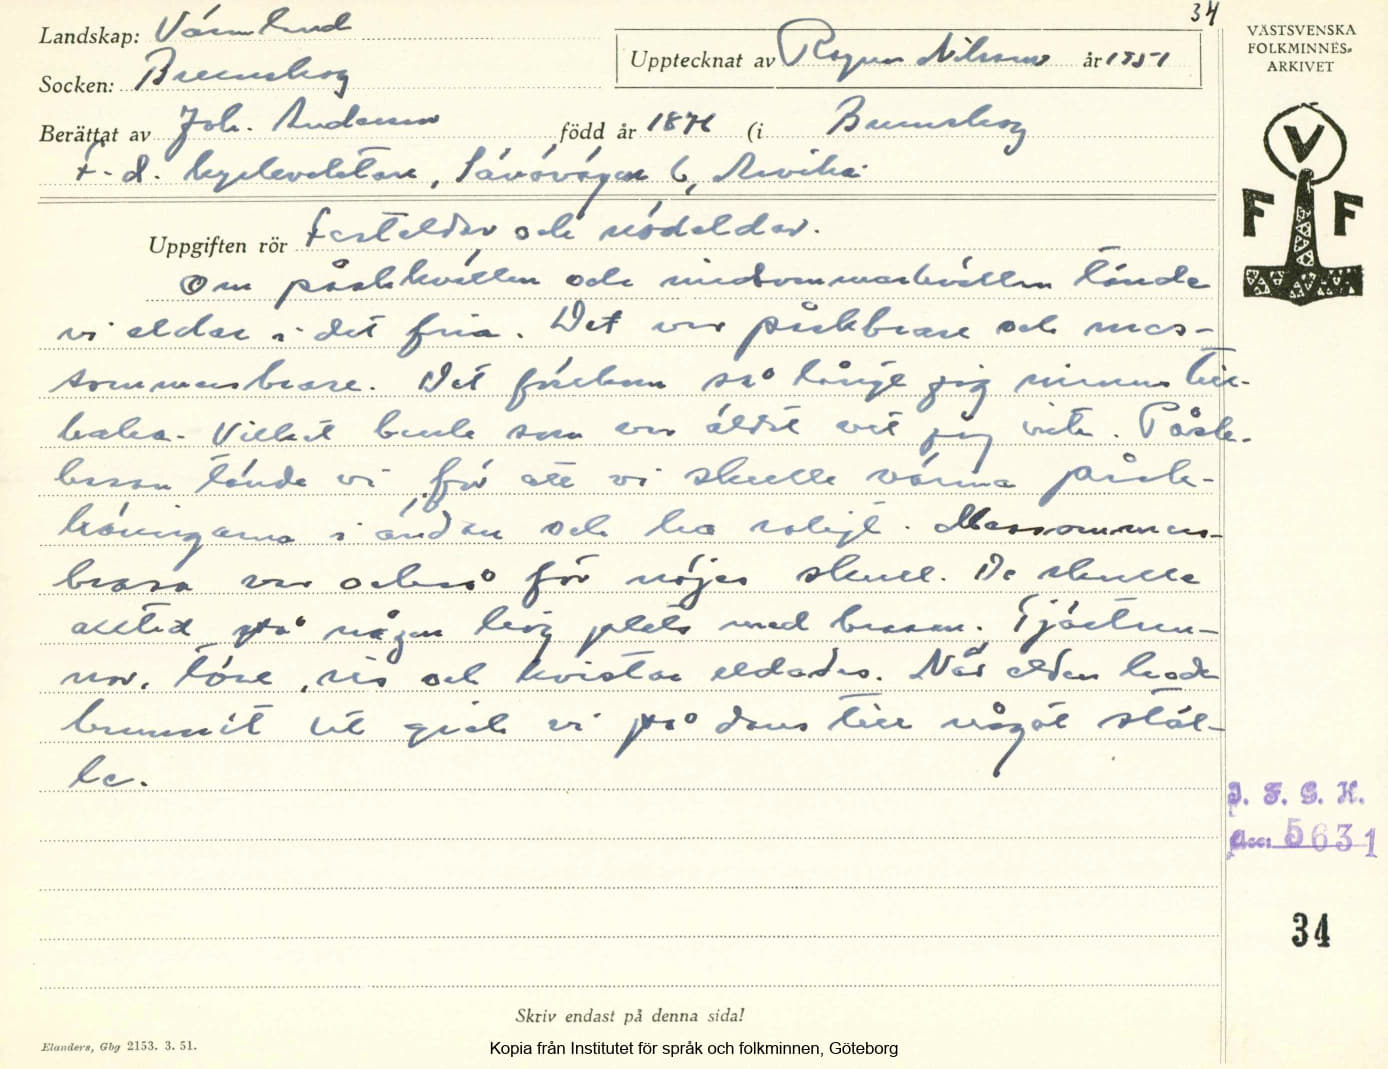 34
Landskap: Värmland
Upptecknat av Ragnar Nilsson år 1951
Socken: Brunskog
Berättat av Joh. Andersson född år 1876 (i Brunskog
f.d. Sävövägen 6, Arvika.
Uppgiften rör Festeldar och nödeldar.
Om påskkvällen och midsommarkvällen tände
vi eldar i det fria. Det var påskbrase och mes-
sommersbrase. Det förekom så långt jag minns till-
baka. Vilket bruk som var äldst vet jag inte. Påsk-
brasan tände vi för att vi skulle värma påsk-
käringarna i ändan och ha roligt. Messommers-
brasa var också för nöjes skull. De skulle
alltid på någon hög plats med brasan. Tjärtun-
nor, töre, ris och kvistar eldades. När elden hade
brunnit ut gick vi på dans till något stäl-
le.
Skriv endast på denna sida!
Elanders, Gbg 2153. 3. 51.
Kopia från Institutet för språk och folkminnen, Göteborg
VÄSTSVENSKA
FOLKMINNES-
ARKIVET
V
F F
I. F. G. H.
Acc: 5631
34